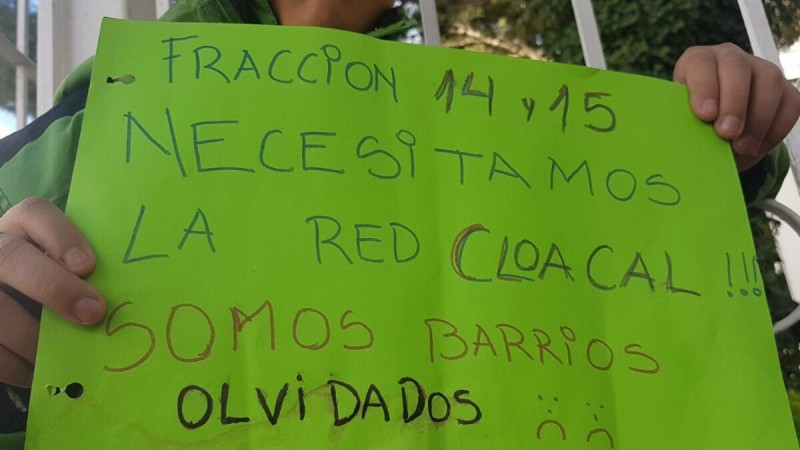 FRACCiON 14 y 15
NECESiTAMOS
LA RED CLOACAL !!!
SOMOS BARRiOS
OLViDADOS :( :(